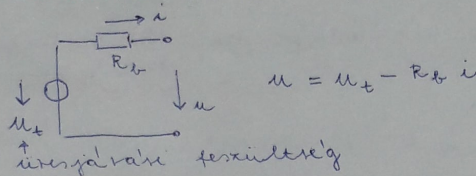 i
R_b
u = u_t - R_b i
u
u_t
üresjárási feszültség